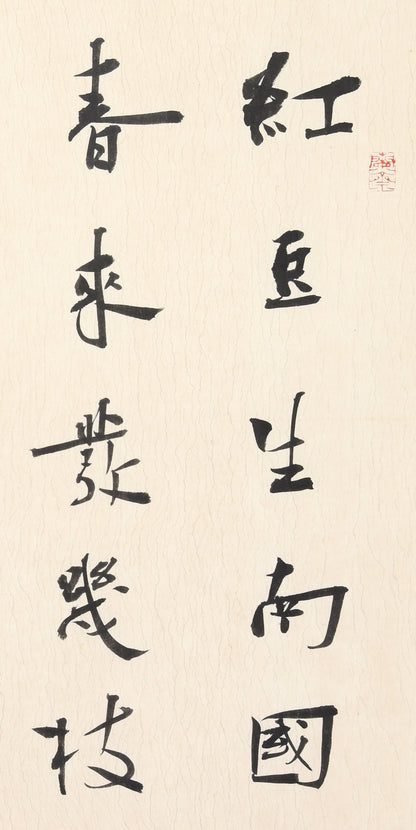 紅豆生南國
春來發幾枝